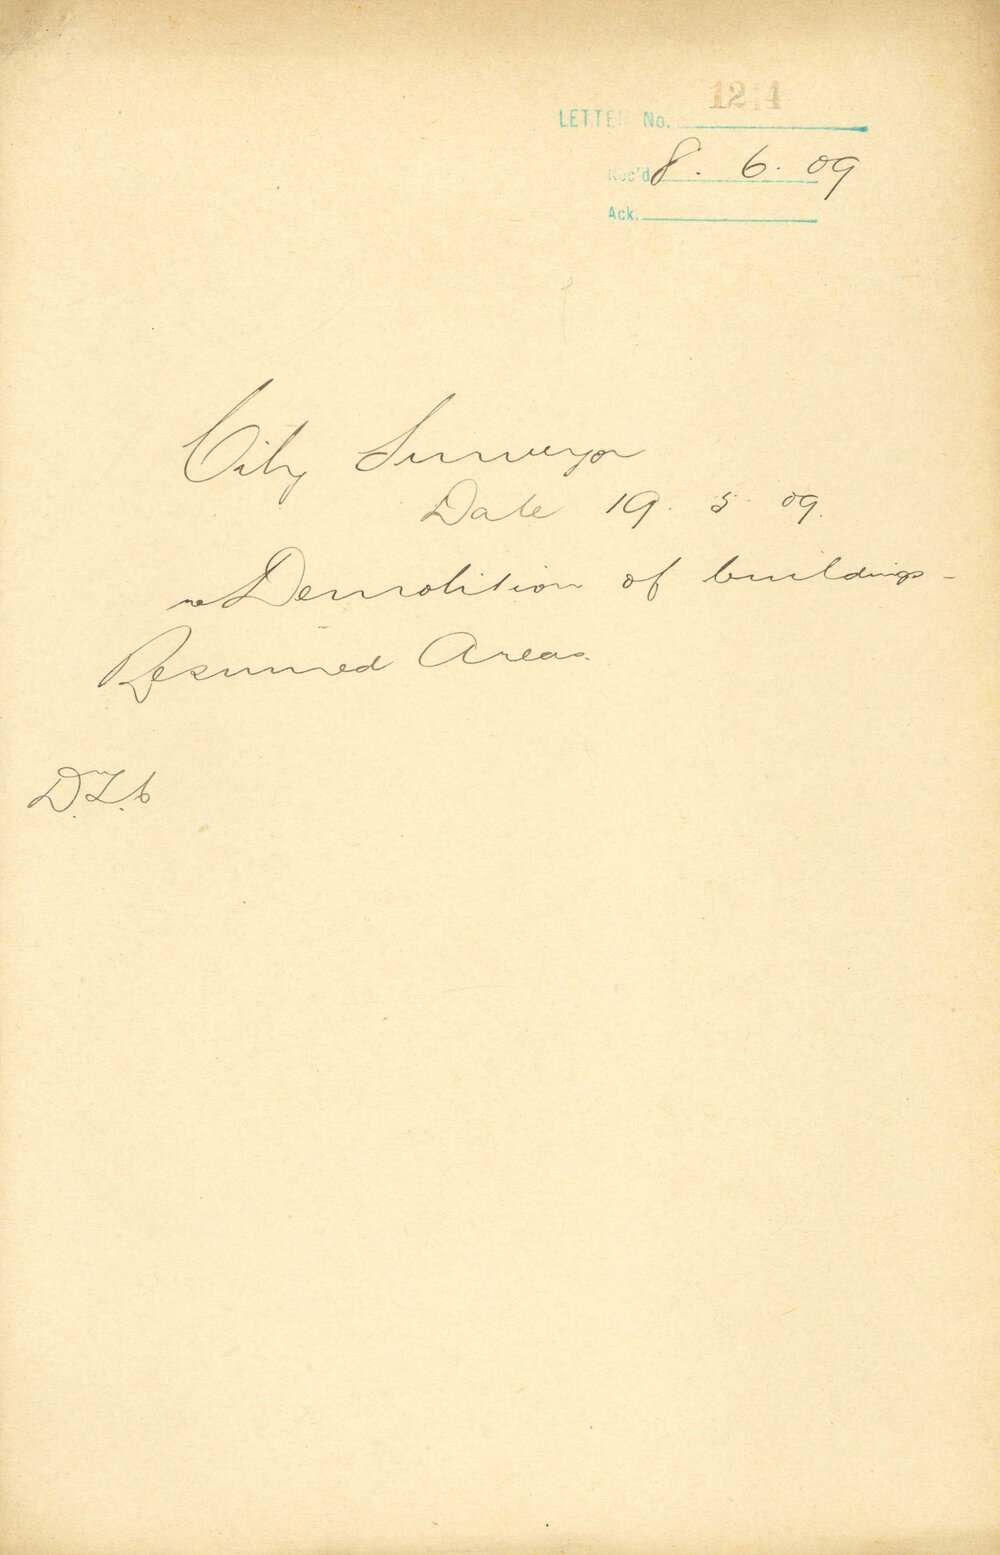 LETTER No.
Rec'd 8. 6. 09
Ack.
City Surveyor
Date 19. 5. 09.
re Demolition of buildings -
Resumed Areas.